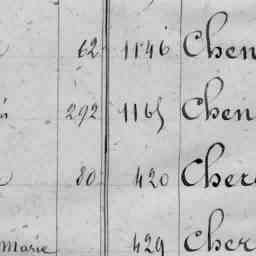 62 1146 Chen
292 1165 Chen
80 420 Cher
Marie 429 Cher